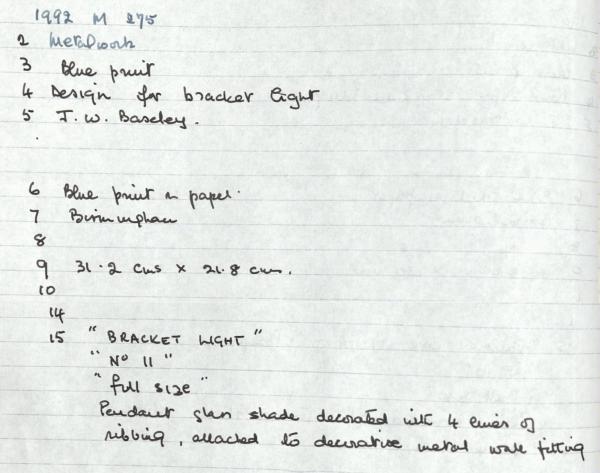 1992 M 275
2 Metalwork
3 Blue print
4 Design for bracket light
5 J. W. Baseley.
6 Blue print on paper.
7 Birmingham
8
9 31.2 cms x 21.8 cms.
10
14
15 " BRACKET LIGHT "
" No 11 "
" full size "
Pendant glass shade decorated with 4 lines of
ribbing, attached to decorative metal wall fitting